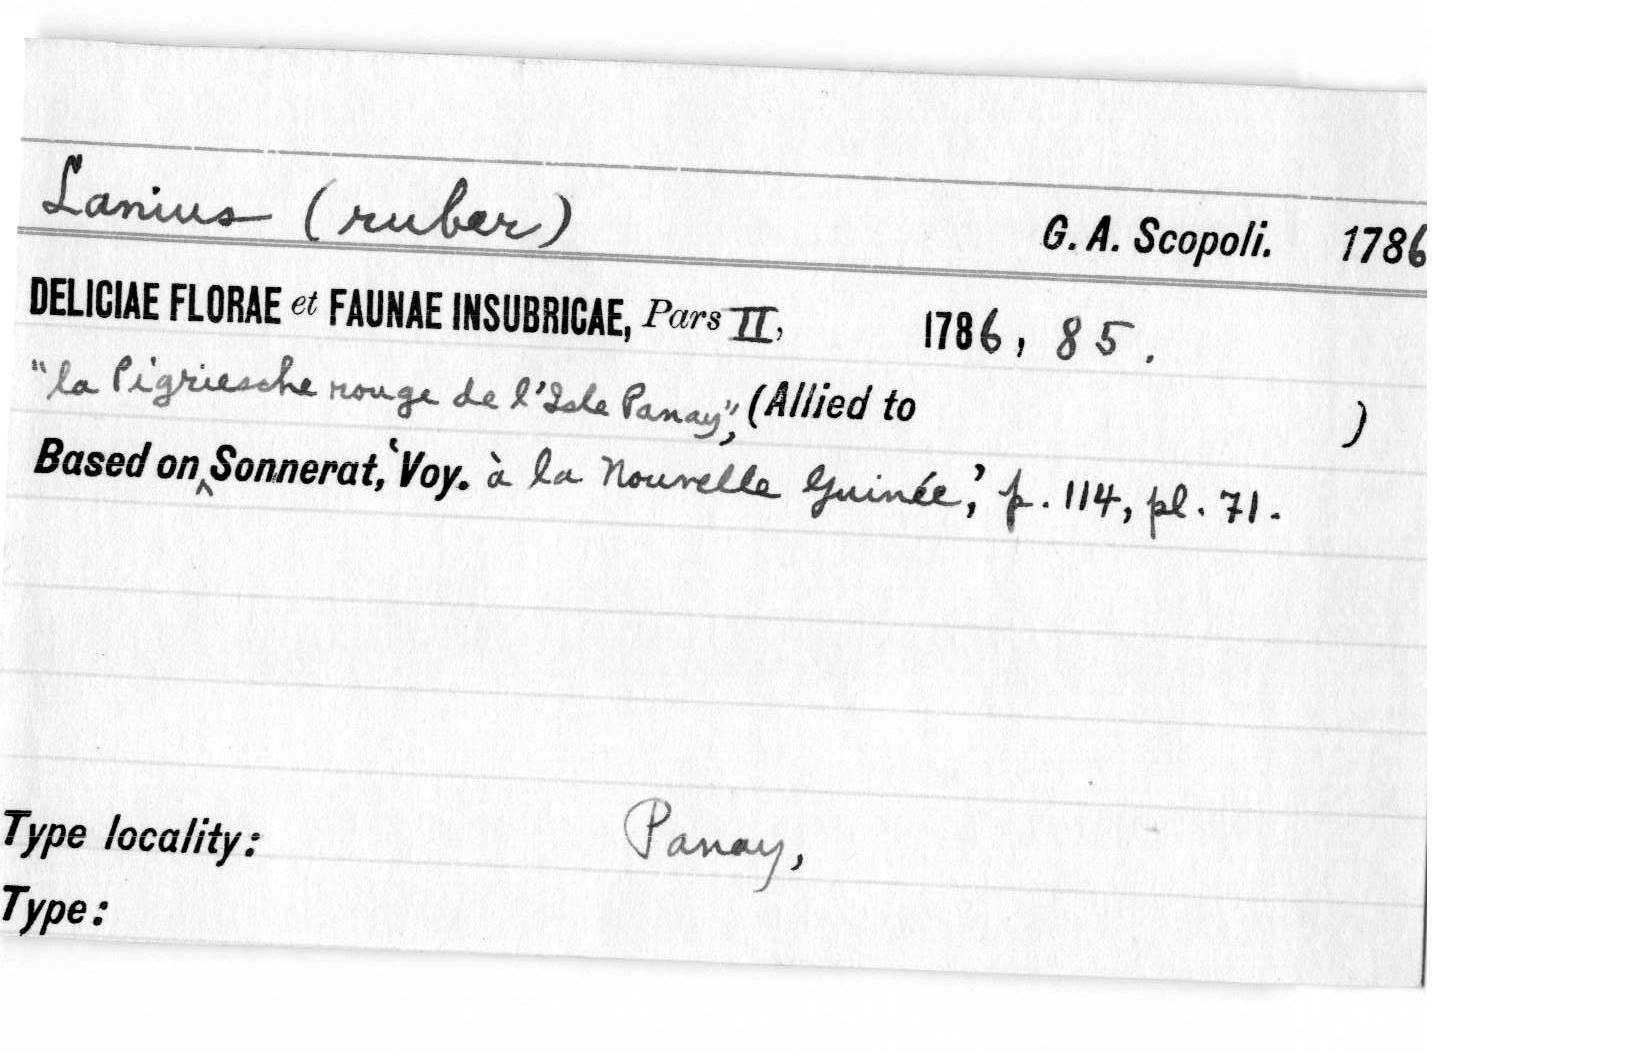 Lanius (ruber) G. A. Scopoli. 1786
DELICIAE FLORAE et FAUNAE INSUBRICAE, Pars II, 1786, 85.
"la Pigriesche rouge de l'Isle Panay", (Allied to )
Based on ‸ Sonnerat, 'Voy. à la Nouvelle Guinée,' p. 114, pl. 71.
Type locality: Panay,
Type: